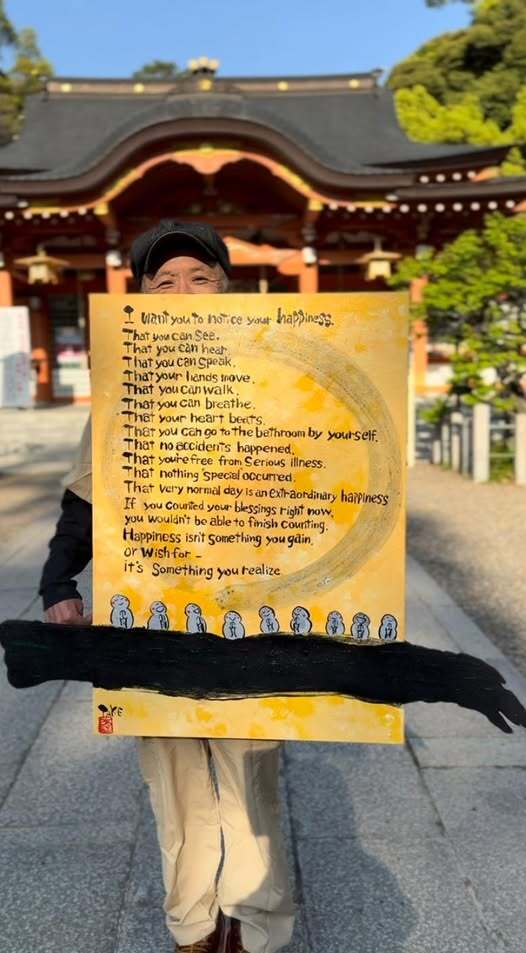 I want you to notice your happiness.
That you can See.
That you can hear.
That you can Speak.
That your hands move.
That you can walk.
That you can breathe.
That your heart beats.
That you can go to the bathroom by yourself.
That no accidents happened.
That you're free from Serious illness.
That nothing special occurred.
That very normal day is an extraordinary happiness
If you counted your blessings right now,
you wouldn't be able to finish counting.
Happiness isn't something you gain,
or wish for -
it's Something you realize
TAKE